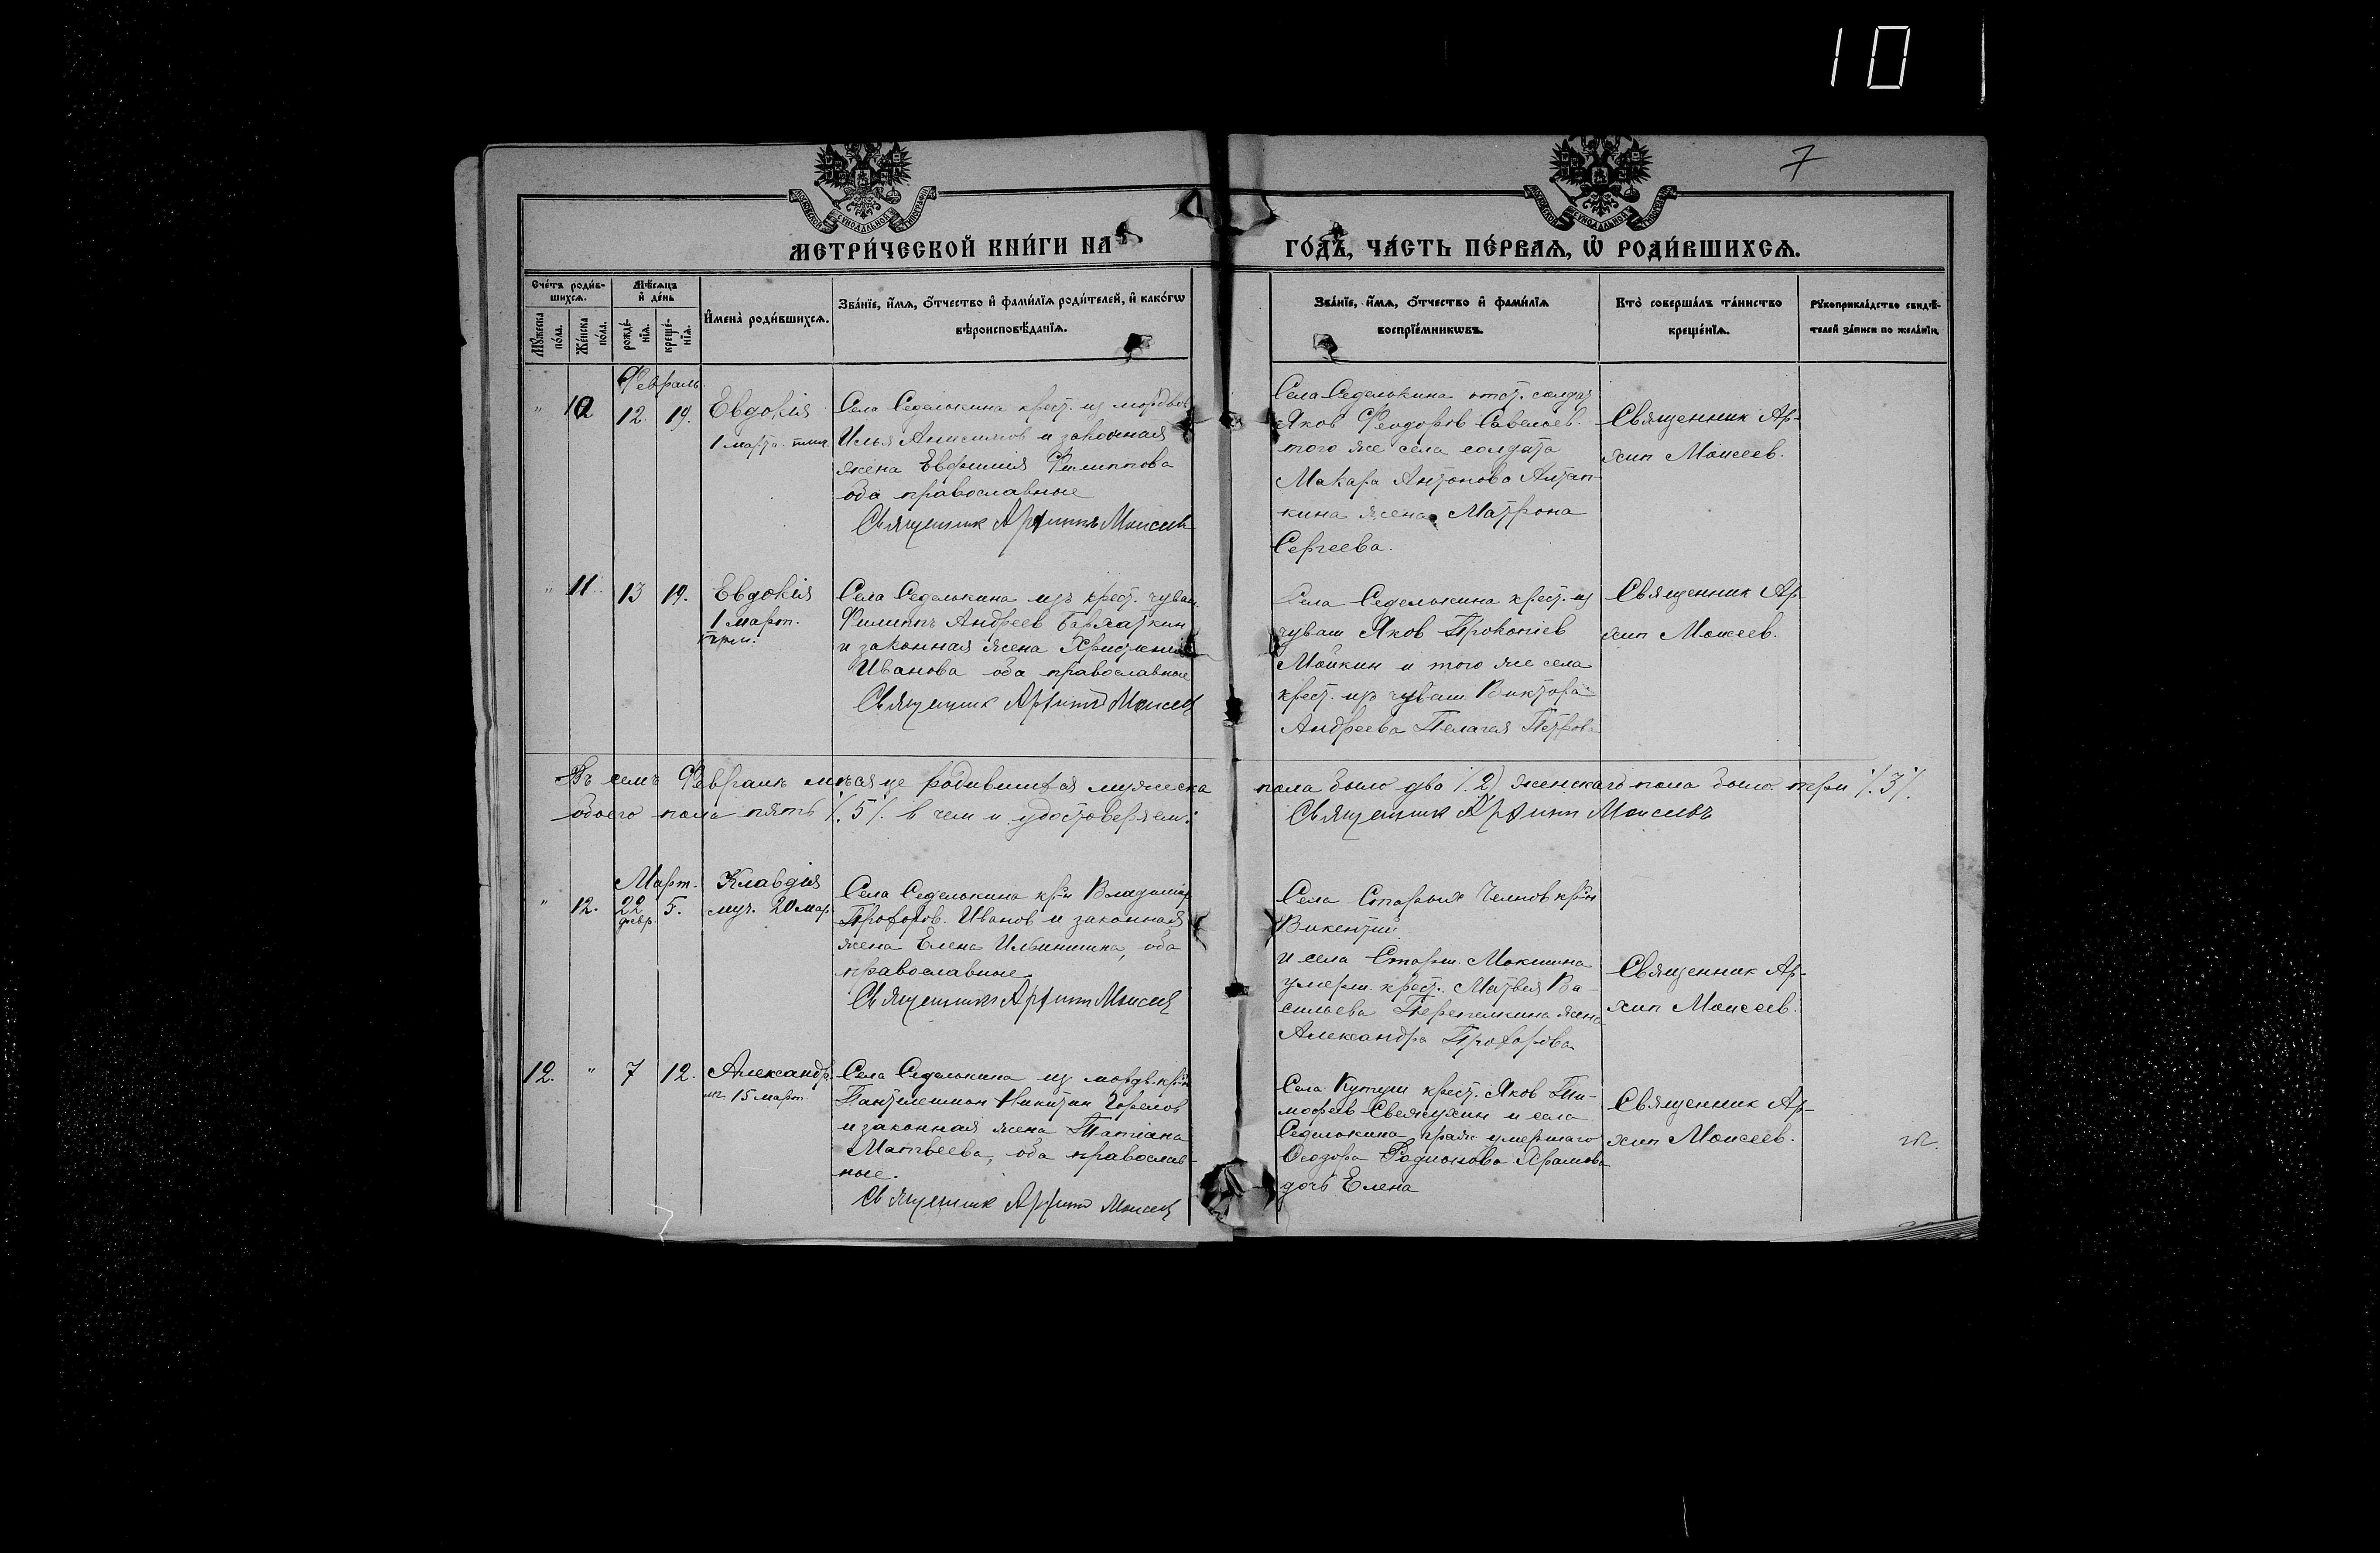 10
7
МОСКОВСКОЙ СѴНОДАЛЬНОЙ ТИПОГРАФІИ
МОСКОВСКОЙ СѴНОДАЛЬНОЙ ТИПОГРАФІИ
МЕТРИ́ЧЕСКОЙ КНИ́ГИ НА
ГО́ДЪ, ЧА́СТЬ ПЕ́РВАЯ, Ѡ РОДИ́ВШИХСЯ.
Сче́тъ роди́в-
шихся.
Мꙋ́жеска
по́ла.
Же́нска
по́ла.
Мѣ́сяцъ
и́ де́нь
рожде́-
нїя.
креще́-
нїя.
И҆мена̀ роди́вшихся.
Зва́нїе, и҆́мя, ѻ҆́тчество и҆ фами́лїя роди́телей, и҆ како́гѡ
вѣроисповѣ́данїя.
Зва́нїе, и҆́мя, ѻ҆́тчество и҆ фами́лїя
воспрїе́мникѡвъ.
Кто̀ соверша́лъ та́инство
креще́нїя.
Рꙋкоприкла́дство свидѣ́-
телей за́писи по жела́нїю.
Февраль
" 10 12. 19. Евдокія
1 марта
Села Седелькина крест. из мордвов
Илья Анисимов и законная
жена Евфимия Филиппова
оба православные
Священник Архипъ Моисеев
Села Седелькина отст. солдат
Яков Феодоров Савельев.
того же села солдата
Макара Антонова Алтап-
кина жена Матрона
Сергеева.
Священник Ар-
хип Моисеев.
" 11. 13 19. Евдокія
1 март.
Села Седелькина изъ крест. чуваш.
Филиппъ Андреев
и законная жена Христина
Иванова оба православные
Священник Архипъ Моисеев
Села Седелькина крест. из
чуваш Яков Прокопіев
Мойкин и того же села
крест. изъ чуваш Виктора
Андреева Пелагея Петрова
Священник Ар
хип Моисеев.
Въ семъ Февралѣ мѣсяце родившихся мужеска
пола было два /.2) женскаго пола было три /.3/.
обоего пола пять /.5/. в чем и удостоверяем:
Священник Архип Моисеевъ
Март.
" 12. 22 февр. 5. Клавдия
муч. 20 мар.
Села Седелькина кр-н Владимир
Прохоров. Иванов и законная
жена Елена Ильинишна, оба
православные.
Священникъ Архип Моисеев
Села Старых Челнов кр-н
Викентий
и села Старш. Мокшина
умерш. крест. Матвея Ва-
сильева Перепелкина жена
Александра Прохорова
Священник Ар-
хип Моисеев.
12. " 7 12. Александр.
15 март.
Села Седелькина из мордв. кр-н
Пантелеимон Никитин Горелов
и законная жена Татіана
Матвеева, оба православ-
ные.
Священник Архипъ Моисеев
Села Кутуш крест. Яков Ти-
мофеев и села
Седелькина умершаго
Феодора Родионова Храмова
дочь Елена
Священник Ар-
хип Моисеев.
7